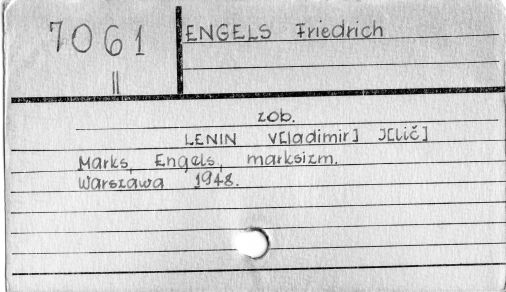 7061
II
ENGELS Friedrich
zob.
LENIN V[ladimir] I[lič]
Marks, Engels, marksizm.
Warszawa 1948.